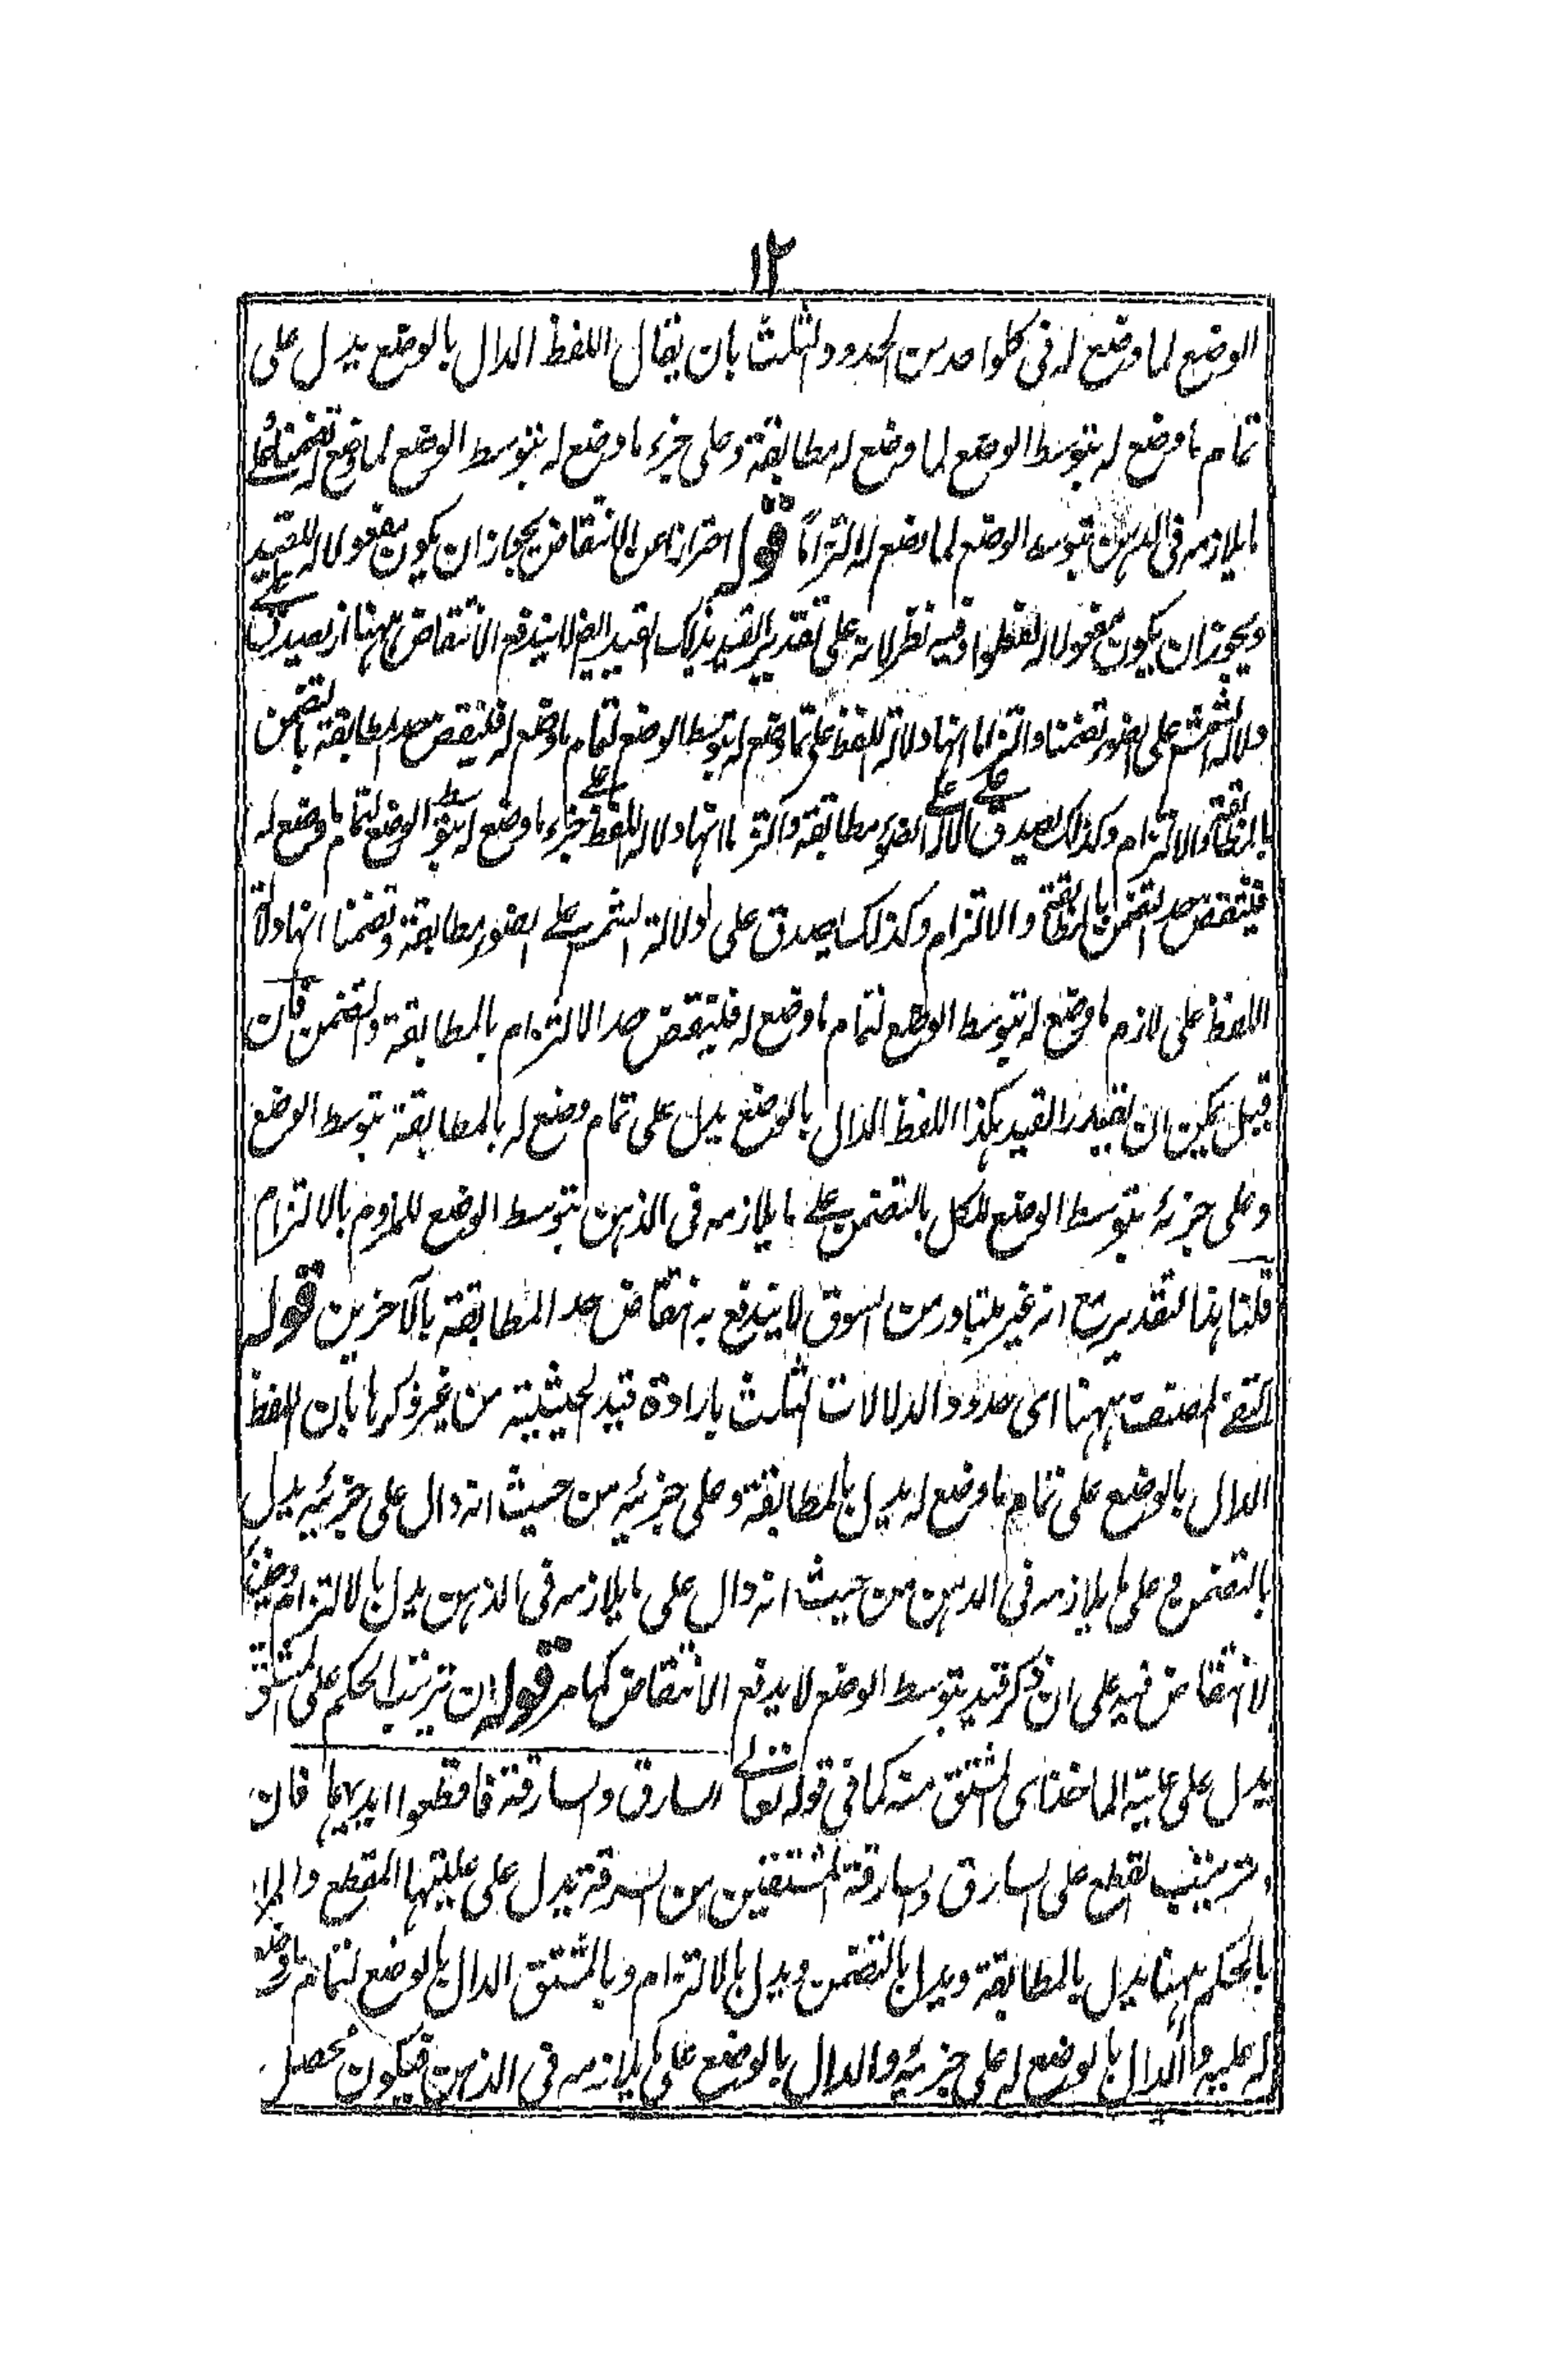 ١٢
الوضع لما وضع له فى كلواحد من الحدود الثلث بان يقال اللفظ الدال بالوضع يدل على
تمام ما وضع له بتوسط الوضع لما وضع له مطابقة وعلى جزء ما وضع له بتوسط الوضع لما وضع له تضمنا وعلى
ما يلازمه فى الذهن بتوسط الوضع لما وضع له التزاماً قوله احترازا عن الانتقاض يجوز ان يكون مفعولا له للتقييد
ويجوز ان يكون مفعولا له لفعلوا وفيه نظر لانه على تقدير التقييد بذلك القيد ايضا لا يندفع الانتقاض ههنا اذ يصدق على
دلالة الشمس على الضوء تضمنا والتزاما انها دلالة اللفظ على تمام ما وضع له بتوسط الوضع لتمام ما وضع له فلينتقض حد المطابقة بالتضمن
والالتزام وكذلك يصدق على الضوء مطابقة والتزاما انها دلالة اللفظ على جزء ما وضع له بتوسط الوضع لتمام ما وضع له
فينتقض حد التضمن بالمطابقة والالتزام وكذلك يصدق على دلالة الشمس على الضوء مطابقة وتضمنا انها دلالة
اللفظ على لازم ما وضع له بتوسط الوضع لتمام ما وضع له فلينتقض حد الالتزام بالمطابقة والتضمن فان
قيل يمكن ان يقيد القيد بكذا اللفظ الدال بالوضع يدل على تمام وضع له بالمطابقة بتوسط الوضع
وعلى جزئه بتوسط الوضع للكل بالتضمن على ما يلازمه فى الذهن بتوسط الوضع للملزوم بالالتزام
قلنا هذا التقدير مع انه غير متبادر من السوق لا يندفع به انتقاض حد المطابقة بالآخرين قوله
اكتفى المصنف ههنا اى حدود الدلالات الثلث بارادة قيد الحيثية من غير ذكرها بان اللفظ
الدال بالوضع على تمام ما وضع له يدل بالمطابقة وعلى جزئيه من حيث انه دال على جزئيه يدل
بالتضمن وعلى ما يلازمه فى الذهن من حيث انه دال على ما يلازمه فى الذهن يدل بالالتزام
لانتقاض فيه على ان ذكر قيد بتوسط الوضع لا يدفع الانتقاض كما مر قوله ان ترتيب الحكم على المشتق
يدل على علية الماخذ اى المشتق منه كما فى قوله تعالى السارق والسارقة فاقطعوا ايديهما فان
ترتيب القطع على السارق والسارقة المشتقين من السرقة يدل على عليتها القطع والمراد
بالحكم ههنا يدل بالمطابقة ويدل بالتضمن ويدل بالالتزام وبالمشتق الدال بالوضع لتمام ما وضع
له عليه والدال بالوضع له على جزئيه والدال بالوضع على ما يلازمه فى الذهن فيكون محصل